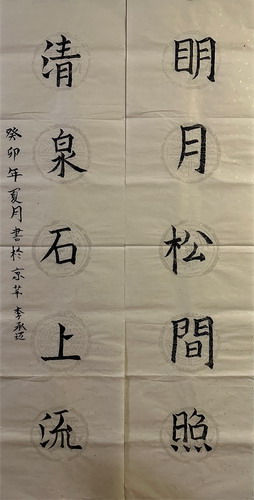 明月松間照
清泉石上流
癸卯年夏月書於京華李承